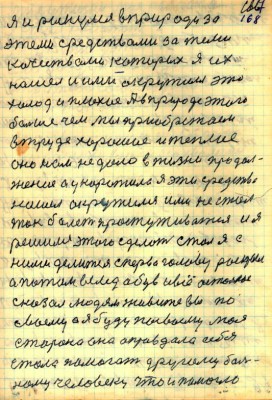 168
Я и ринулся в природу за
этими средствами за теми
качествами которых я их
нашел и ими окружил это
холод и плохие я в природе этого
больше чем мы приобретаем
в труде хорошие и теплие
оно нам не дало в жизни продол-
жение а укоротило я эти средства
нашел окружил ими не стал
так болеть простуживатся и я
решил этого сделать стал я с
ними делится сперва голову раскрыл
а потом вслед обув свое остальное
сказал людям живите вы по
своему а я буду по своему моя
сторона она оправдала себя
стала помогать другому боль-
ному человеку что и помогло